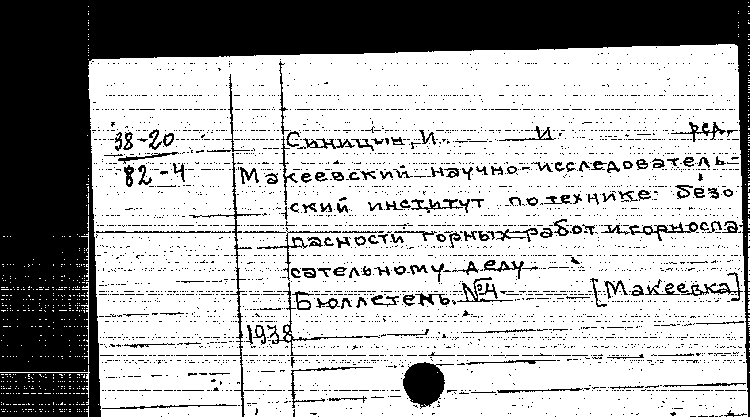 38-20
82-4
Синицын, И. И. ред.
Макеевский научно-исследователь-
ский институт по технике безо
пасности горных работ и горноспа
сательному делу
Бюллетень. №4. [Макеевка]
1938